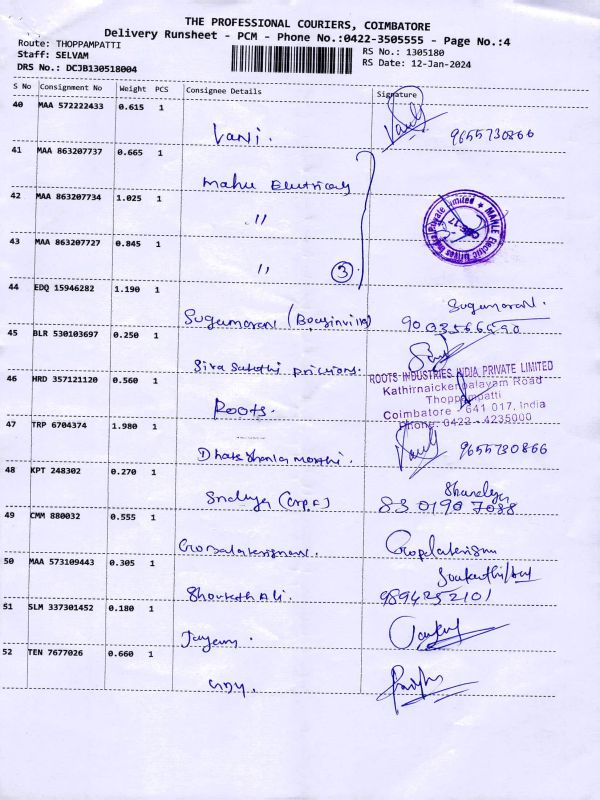 THE PROFESSIONAL COURIERS, COIMBATORE
Delivery Runsheet - PCM - Phone No.:0422-3505555 - Page No.:4
Route: THOPPAMPATTI
Staff: SELVAM
DRS No.: DCJB130518004
RS No.: 1305180
RS Date: 12-Jan-2024
S No Consignment No Weight PCS Consignee Details Signature
40 MAA 572222433 0.615 1
Vani. 9655730866
41 MAA 863207737 0.665 1
Mahle Electricals
42 MAA 863207734 1.025 1
"
43 MAA 863207727 0.845 1
" 3
MAHLE Electric Drives India Private Limited
44 EDQ 15946282 1.190 1
Sugumaran
45 BLR 530103697 0.250 1
Siva Sakthi
46 HRD 357121120 0.560 1
Roots.
ROOTS INDUSTRIES INDIA PRIVATE LIMITED
Kathirnaickenpalayam Road
Thoppampatti
Coimbatore - 641 017, India
Phone: 0422 - 4235000
47 TRP 6704374 1.980 1
9655730866
48 KPT 248302 0.270 1
83 0190 7088
49 CMM 880032 0.555 1
50 MAA 573109443 0.305 1
Showkath Ali. 9894252101
51 SLM 337301452 0.180 1
52 TEN 7677026 0.660 1